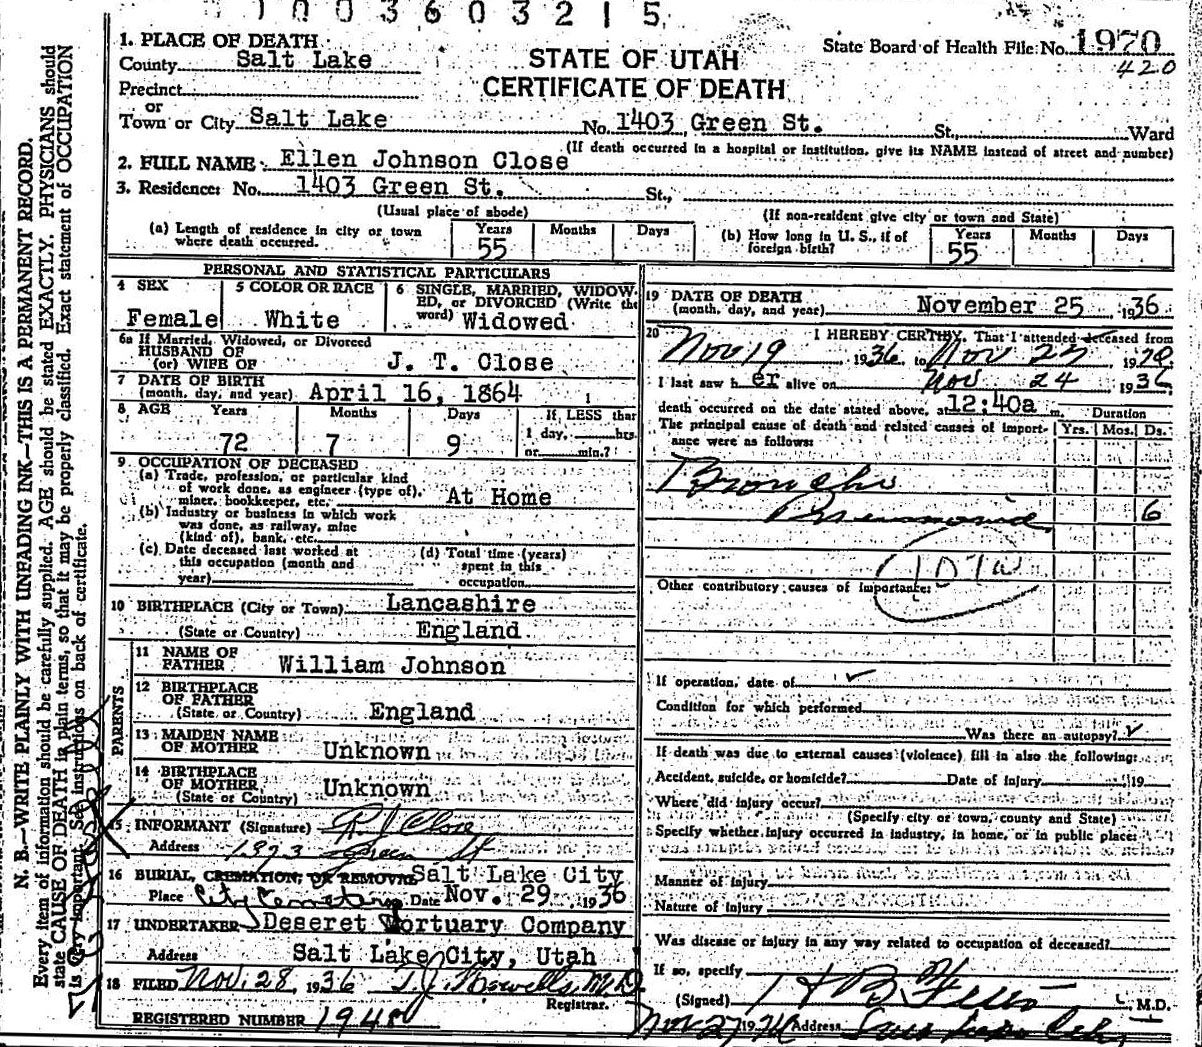 1003603215
1. PLACE OF DEATH
County Salt Lake
Precinct
or
Town or City Salt Lake
STATE OF UTAH
CERTIFICATE OF DEATH
State Board of Health File No. 1970
420
No. 1403 Green St. St., Ward
(If death occurred in a hospital or institution, give its NAME instead of street and number)
2. FULL NAME Ellen Johnson Close
3. Residence: No. 1403 Green St. St.,
(Usual place of abode)
(If non-resident give city or town and State)
(a) Length of residence in city or town where death occurred. Years 55 Months Days
(b) How long in U. S., if of foreign birth? Years 55 Months Days
PERSONAL AND STATISTICAL PARTICULARS
4 SEX Female
5 COLOR OR RACE White
6 SINGLE, MARRIED, WIDOWED, or DIVORCED (Write the word) Widowed
6a If Married, Widowed, or Divorced
HUSBAND OF
(or) WIFE OF J. T. Close
7 DATE OF BIRTH
(month, day, and year) April 16, 1864
8 AGE Years 72 Months 7 Days 9
If LESS than
1 day, hrs.
or min.?
9 OCCUPATION OF DECEASED
(a) Trade, profession, or particular kind
of work done, as engineer (type of),
miner, bookkeeper, etc. At Home
(b) Industry or business in which work
was done, as railway, mine
(kind of), bank, etc.
(c) Date deceased last worked at
this occupation (month and
year)
(d) Total time (years)
spent in this
occupation
10 BIRTHPLACE (City or Town) Lancashire
(State or Country) England
PARENTS
11 NAME OF
FATHER William Johnson
12 BIRTHPLACE
OF FATHER
(State or Country) England
13 MAIDEN NAME
OF MOTHER Unknown
14 BIRTHPLACE
OF MOTHER
(State or Country) Unknown
15 INFORMANT (Signature) Close
Address Green St
16 BURIAL, CREMATION, OR REMOVAL Salt Lake City
Place City Cemetery Date Nov. 29, 1936
17 UNDERTAKER Deseret Mortuary Company
Address Salt Lake City, Utah
18 FILED Nov. 28, 1936 T. J. Howells, M.D.
Registrar.
REGISTERED NUMBER 1948
19 DATE OF DEATH
(month, day, and year) November 25 1936
20 I HEREBY CERTIFY, That I attended deceased from
Nov 19 1936 to Nov 25 19
I last saw her alive on Nov 24 1936
death occurred on the date stated above, at 12:40a m.
The principal cause of death and related causes of importance were as follows:
Duration
Yrs. Mos. Ds.
Broncho
Pneumonia 6
107a
Other contributory causes of importance:
If operation, date of
Condition for which performed
Was there an autopsy?
If death was due to external causes (violence) fill in also the following:
Accident, suicide, or homicide? Date of injury 19
Where did injury occur?
(Specify city or town, county and State)
Specify whether injury occurred in industry, in home, or in public place:
Manner of injury
Nature of injury
Was disease or injury in any way related to occupation of deceased?
If so, specify
(Signed) M.D.
Nov 27 19 Address Salt Lake City
N. B.—WRITE PLAINLY WITH UNFADING INK—THIS IS A PERMANENT RECORD.
Every item of information should be carefully supplied. AGE should be stated EXACTLY. PHYSICIANS should
state CAUSE OF DEATH in plain terms, so that it may be properly classified. Exact statement of OCCUPATION
is very important. See instructions on back of certificate.